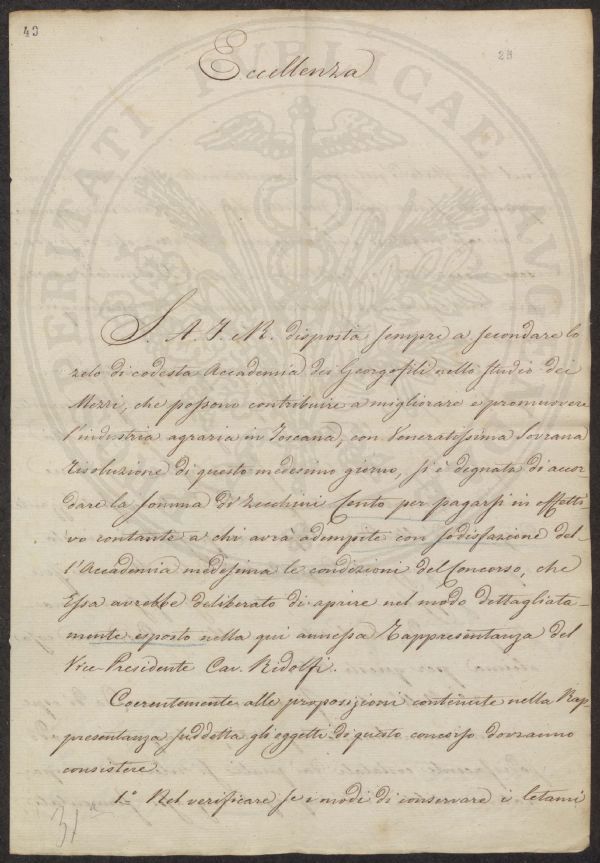 49
28
Eccellenza
PROSPERITATI PUBLICAE AUGENDAE
S. A. I. e R. disposta sempre a secondare lo
zelo di codesta Accademia dei Georgofili nello studio dei
Mezzi, che possono contribuire a migliorare e promuovere
l'industria agraria in Toscana, con Veneratissima Sovrana
Risoluzione di questo medesimo giorno, si è degnata di accor-
dare la somma di Zecchini Cento per pagarsi in effetti-
vo contante a chi avrà adempite con sodisfazione del-
l'Accademia medesima le condizioni del Concorso, che
Essa avrebbe deliberato di aprire nel modo dettagliata-
mente esposto nella qui annessa Rappresentanza del
Vice-Presidente Cav. Ridolfi.
Coerentemente alle proposizioni contenute nella Rap-
presentanza suddetta gli oggetti di questo concorso dovranno
consistere
1.° Nel verificare se i modi di conservare i letami
31